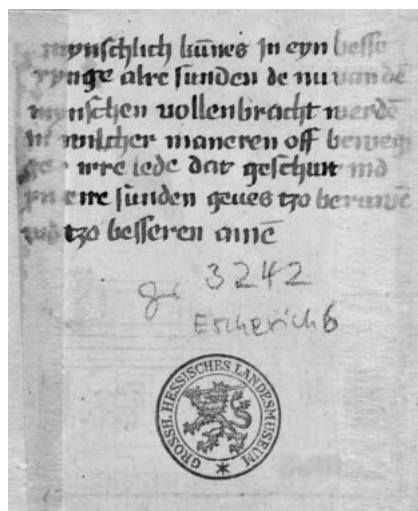 mynschlich kunes in eyn besse
rynge alre sunden de nu van dē
mynschen vollenbracht werdē
in wilcher maneren off beweg
wre lede dat geschut ind
sunden geues tzo beruwē
tzo besseren amē
3242
Escherich 6
GROSSH. HESSISCHES LANDESMUSEUM